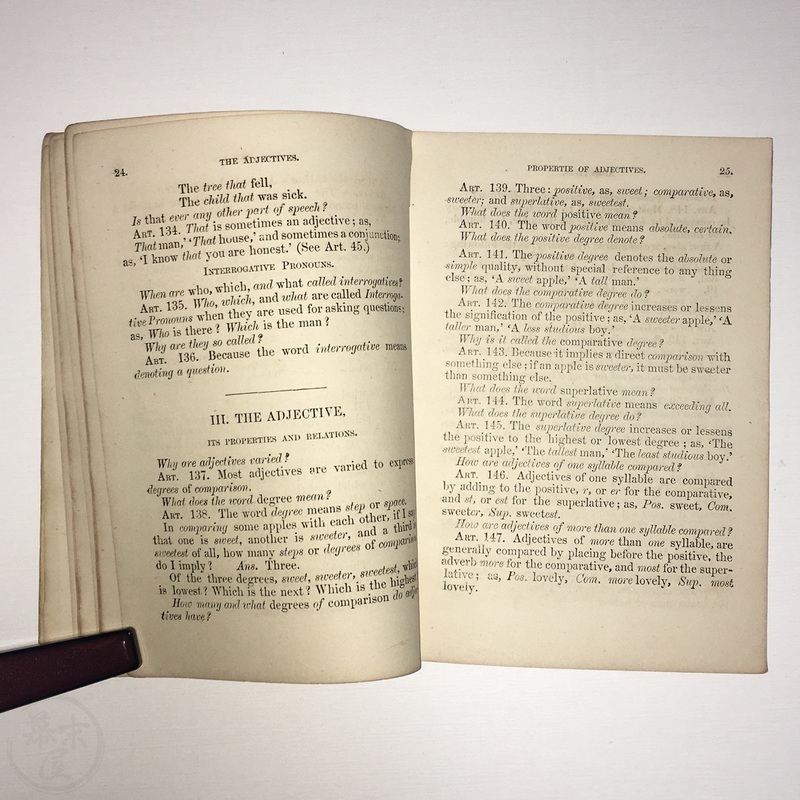 24.
THE ADJECTIVES.
The tree that fell,
The child that was sick.
Is that ever any other part of speech?
ART. 134. That is sometimes an adjective; as,
That man,' 'That house,' and sometimes a conjunction;
as, 'I know that you are honest.' (See Art. 45.)
INTERROGATIVE PRONOUNS.
When are who, which, and what called interrogatives?
ART. 135. Who, which, and what are called Interroga-
tive Pronouns when they are used for asking questions;
as, Who is there? Which is the man?
Why are they so called?
ART. 136. Because the word interrogative means
denoting a question.
III. THE ADJECTIVE,
ITS PROPERTIES AND RELATIONS.
Why are adjectives varied?
ART. 137. Most adjectives are varied to express
degrees of comparison.
What does the word degree mean?
ART. 138. The word degree means step or space.
In comparing some apples with each other, if I say
that one is sweet, another is sweeter, and a third is
sweetest of all, how many steps or degrees of comparison
do I imply? Ans. Three.
Of the three degrees, sweet, sweeter, sweetest, which
is lowest? Which is the next? Which is the highest
How many and what degrees of comparison do adjec
tives have?
PROPERTIE OF ADJECTIVES.
25.
ART. 139. Three: positive, as, sweet; comparative, as,
sweeter; and superlative, as, sweetest.
What does the word positive mean?
ART. 140. The word positive means absolute, certain.
What does the positive degree denote?
ART. 141. The positive degree denotes the absolute or
simple quality, without special reference to any thing
else; as, 'A sweet apple,' 'A tall man.'
What does the comparative degree do?
ART. 142. The comparative degree increases or lessens
the signification of the positive; as, 'A sweeter apple,' 'A
taller man,' 'A less studious boy.'
Why is it called the comparative degree?
ART. 143. Because it implies a direct comparison with
something else; if an apple is sweeter, it must be sweeter
than something else.
What does the word superlative mean?
ART. 144. The word superlative means exceeding all.
What does the superlative degree do?
ART. 145. The superlative degree increases or lessens
the positive to the highest or lowest degree; as, 'The
sweetest apple,' 'The tallest man,' 'The least studious boy.'
How are adjectives of one syllable compared?
ART. 146. Adjectives of one syllable are compared
by adding to the positive, r, or er for the comparative,
and st, or est for the superlative; as, Pos. sweet, Com.
sweeter, Sup. sweetest.
How are adjectives of more than one syllable compared?
ART. 147. Adjectives of more than one syllable, are
generally compared by placing before the positive, the
adverb more for the comparative, and most for the super-
lative; as, Pos. lovely, Com. more lovely, Sup. most
lovely.